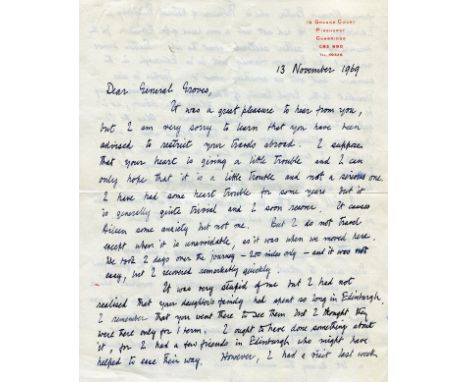 GRANGE COURT
PINEHURST
CAMBRIDGE
13 November 1969
Dear General Groves,
It was a great pleasure to hear from you,
but I am very sorry to learn that you have been
advised to restrict your travels abroad. I suppose
that your heart is giving a little trouble and I can
only hope that it is a little trouble and not a serious one.
I have had some heart trouble for some years but it
is generally quite trivial and I soon recover. It causes
Aileen some anxiety but not me. But I do not travel
except when it is unavoidable, as it was when we moved here.
We took 2 days over the journey - 200 miles only - and it was not
easy, but I recovered remarkably quickly.
It was very stupid of me but I had not
realised that your neighbors family had spent so long in Edinburgh.
I remember that you went there to see them but I thought they
were there only for 1 term. I ought to have done something about
it, for I had a few friends in Edinburgh who might have
helped to ease their way. However, I had a visit last week